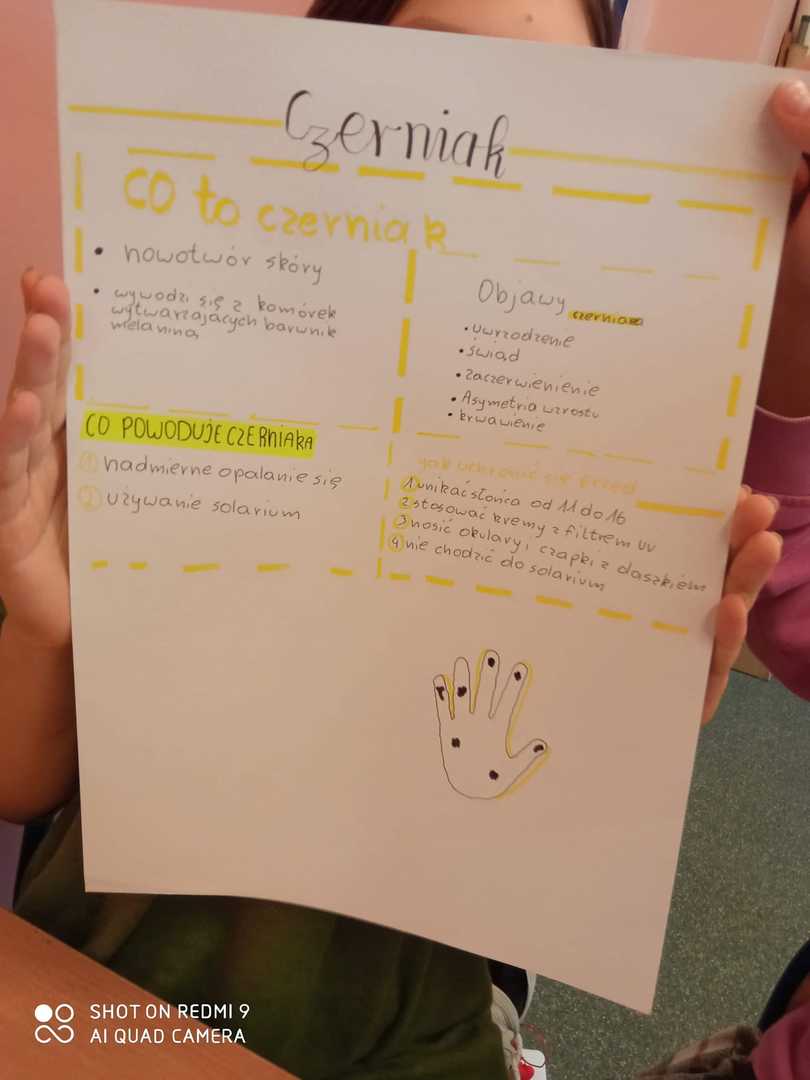 Czerniak
CO to czerniak
• nowotwór skóry
• wywodzi się z komórek
wytwarzających barwnik
melaninę
Objawy czerniaka
• uwrzodzenie
• świąd
• zaczerwienienie
• Asymetria wzrostu
• krwawienie
CO POWODUJE CZERNIAKA
1 nadmierne opalanie się
2 używanie solarium
jak uchronić się przed
1 unikać słońca od 11 do 16
2 stosować kremy z filtrem UV
3 nosić okulary i czapki z daszkiem
4 nie chodzić do solarium
SHOT ON REDMI 9
AI QUAD CAMERA